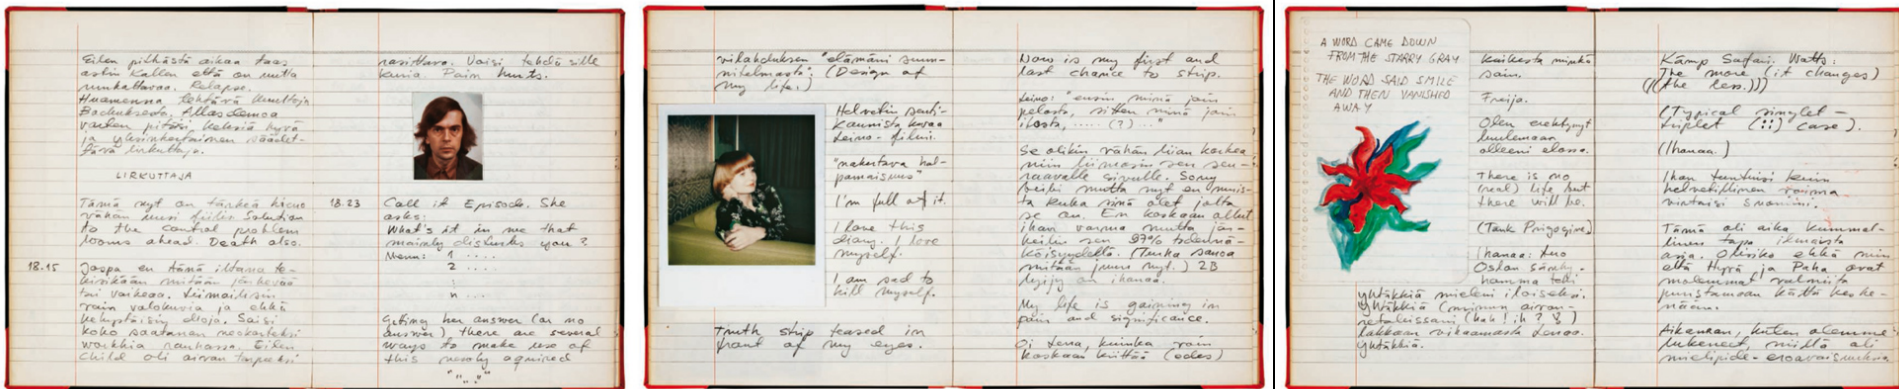 Eilen pitkästä aikaa taas
astin Kallen että on mutta
munkattavaa. Relapse.
Huomenna tehtävä kunttoja
varten pitäisi keksiä hyvä
ja yksinkertainen säädet-
tävä lirkuttaja.
LIRKUTTAJA
Tämä nyt on tärkeä
vähän uusi fiilis. Solution
to the control problem
looms ahead. Death also.
18.15
Jospa en tänä iltana te-
kisikään mitään järkevää
tai vaikeaa. Liimailisin
vain valokuvia ja ehkä
kehystäisin dioja. Saisi
koko saatanan neokorteksi
rauhassa. Eilen
Child oli aivan tarpeeksi
rasittava. Voisi tehdä sille
kunia. Pain hunts.
18.23
Call it Episode. She
asks:
What's it in me that
mainly disturbs you?
Menu: 1 ....
2 ....
:
n ....
Getting her answer (or no
answer) there are several
ways to make use of
this newly aquired
"..."
vilahduksen "elämäni suun-
nitelmasta". (Design of
my life!)
Helvetin senti-
"nakertava hal-
pamaisuus"
I'm full of it.
I love this
diary. I love
myself.
I am sad to
kill myself.
Truth strip teased in
front of my eyes.
Now is my first and
last chance to strip.
Leino: "ensin minä join
pelosta, sitten minä join
ilosta, ..... (?) "
Se olikin vähän liian korkea
niin liimasin sen seu-
raavalle sivulle. Sorry
beibi mutta nyt en muis-
ta kuka sinä olet jolta
se on. En koskaan ollut
ihan varma mutta
sen 97% todennä-
köisyydellä. (Turha sanoa
mitään juuri nyt.) 2B
lyijy on ihanaa.
My life is gaining in
pain and significance.
Oi Lena, kuinka voin
koskaan kiittää (edes)
A WORD CAME DOWN
FROM THE STARRY GRAY
THE WORD SAID SMILE
AND THEN VANISHED
AWAY
kaikesta minkä
sain.
Freija.
Olen erehtynyt
luulemaan
olleeni elossa.
There is no
(real) life but
there will be.
(Tank Prigogine)
Ihanaa: tuo
Oslon särky-
hamma teki
yhtäkkiä mieleni iloiseksi.
Yhtäkkiä (minun aivan
(hah! ih? ?)
lakkaan vihaamasta
Yhtäkkiä.
Kämp Safari. Watts:
The more (it changes)
(((the less.)))
(Typical singlet-
triplet (::) case).
(Ihanaa.)
Ihan tuntuisi kuin
helvetillinen voima
Tämä oli aika kummal-
linen tapa ilmaista
asia. Olisiko ehkä niin
että Hyvä ja Paha ovat
molemmat valmiita
puristamaan kättä keske-
nään.
Aikanaan, kuten olemme
lukeneet, niillä oli
mielipide-eroavaisuuksia